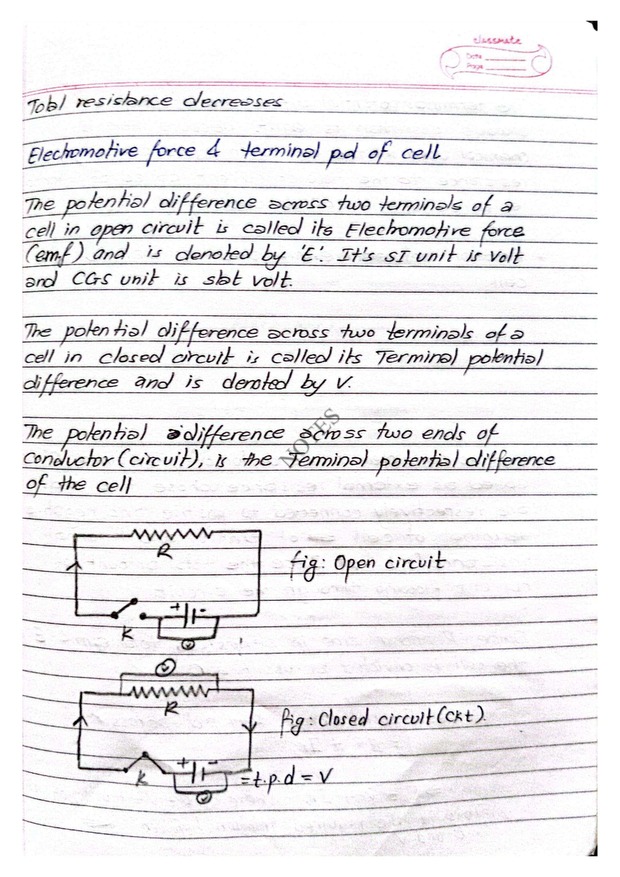 classmate
Date
Page
Total resistance decreases
Electromotive force & terminal p.d of cell
The potential difference across two terminals of a
cell in open circuit is called its Electromotive force
(emf) and is denoted by 'E'. It's SI unit is Volt
and CGS unit is stat volt.
The potential difference across two terminals of a
cell in closed circuit is called its Terminal potential
difference and is denoted by V.
The potential difference across two ends of
conductor (circuit), is the Terminal potential difference
of the cell
NOTES
R
fig: Open circuit
+ -
K
V
V
R
fig: Closed circuit (Ckt).
+ -
K
= t.p.d = V
V